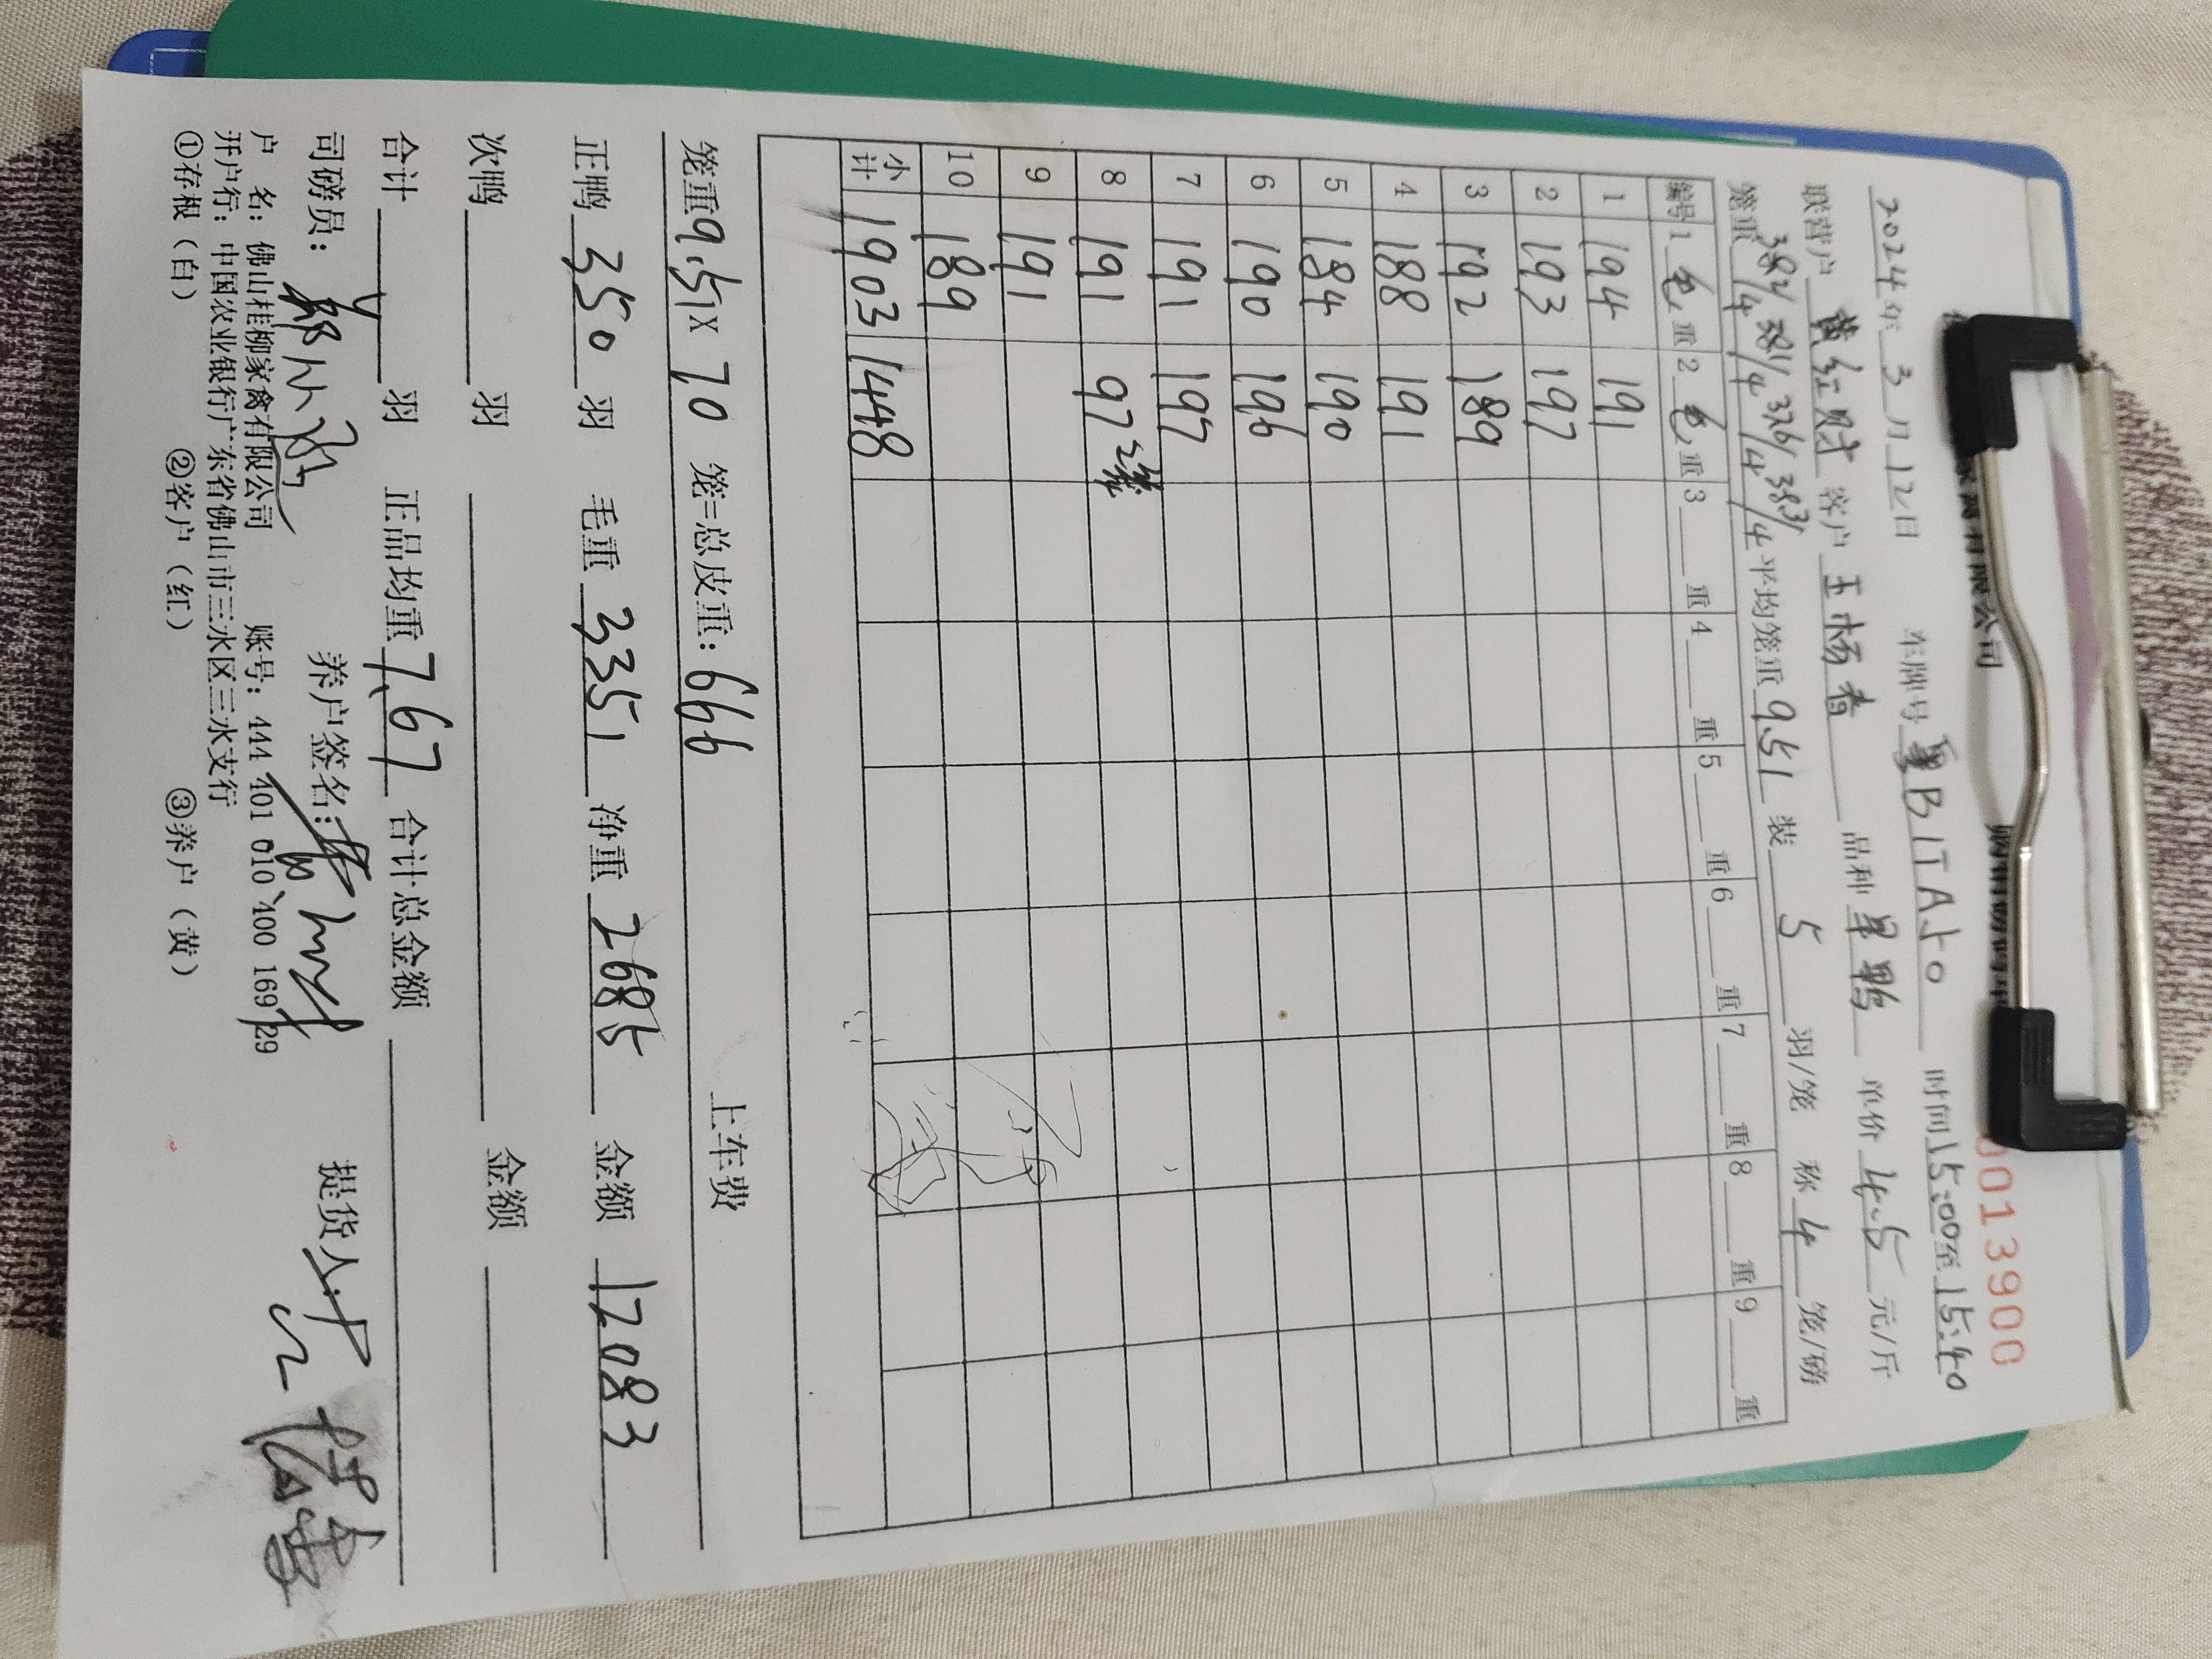 0013900
2024年3月12日 车牌号 BITA50 时间15:00至15:40
联营户 黄红财 客户 王杨春 品种 单鸭 单价 4.5 元/斤
笼重 382/4 381/4 376/4 383/4 平均笼重 9.51 装 5 羽/笼 称 4 笼/磅
编号 1 毛 重 2 毛 重 3 重 4 重 5 重 6 重 7 重 8 重 9 重
1 194 191
2 193 197
3 192 189
4 188 191
5 184 190
6 190 196
7 191 197
8 191 97
9 191
10 189
小计 1903 1448
笼重 9.51 X 70 笼=总皮重: 666 上车费
正鸭 350 羽 毛重 3351 净重 2685 金额 12083
次鸭 羽 金额
合计 羽 正品均重 7.67 合计总金额
司磅员: 养户签名: 提货人:
户 名: 佛山桂柳家禽有限公司 账号: 444 401 010 400 169 29
开户行: 中国农业银行广东省佛山市三水区三水支行
①存根（白） ②客户（红） ③养户（黄）